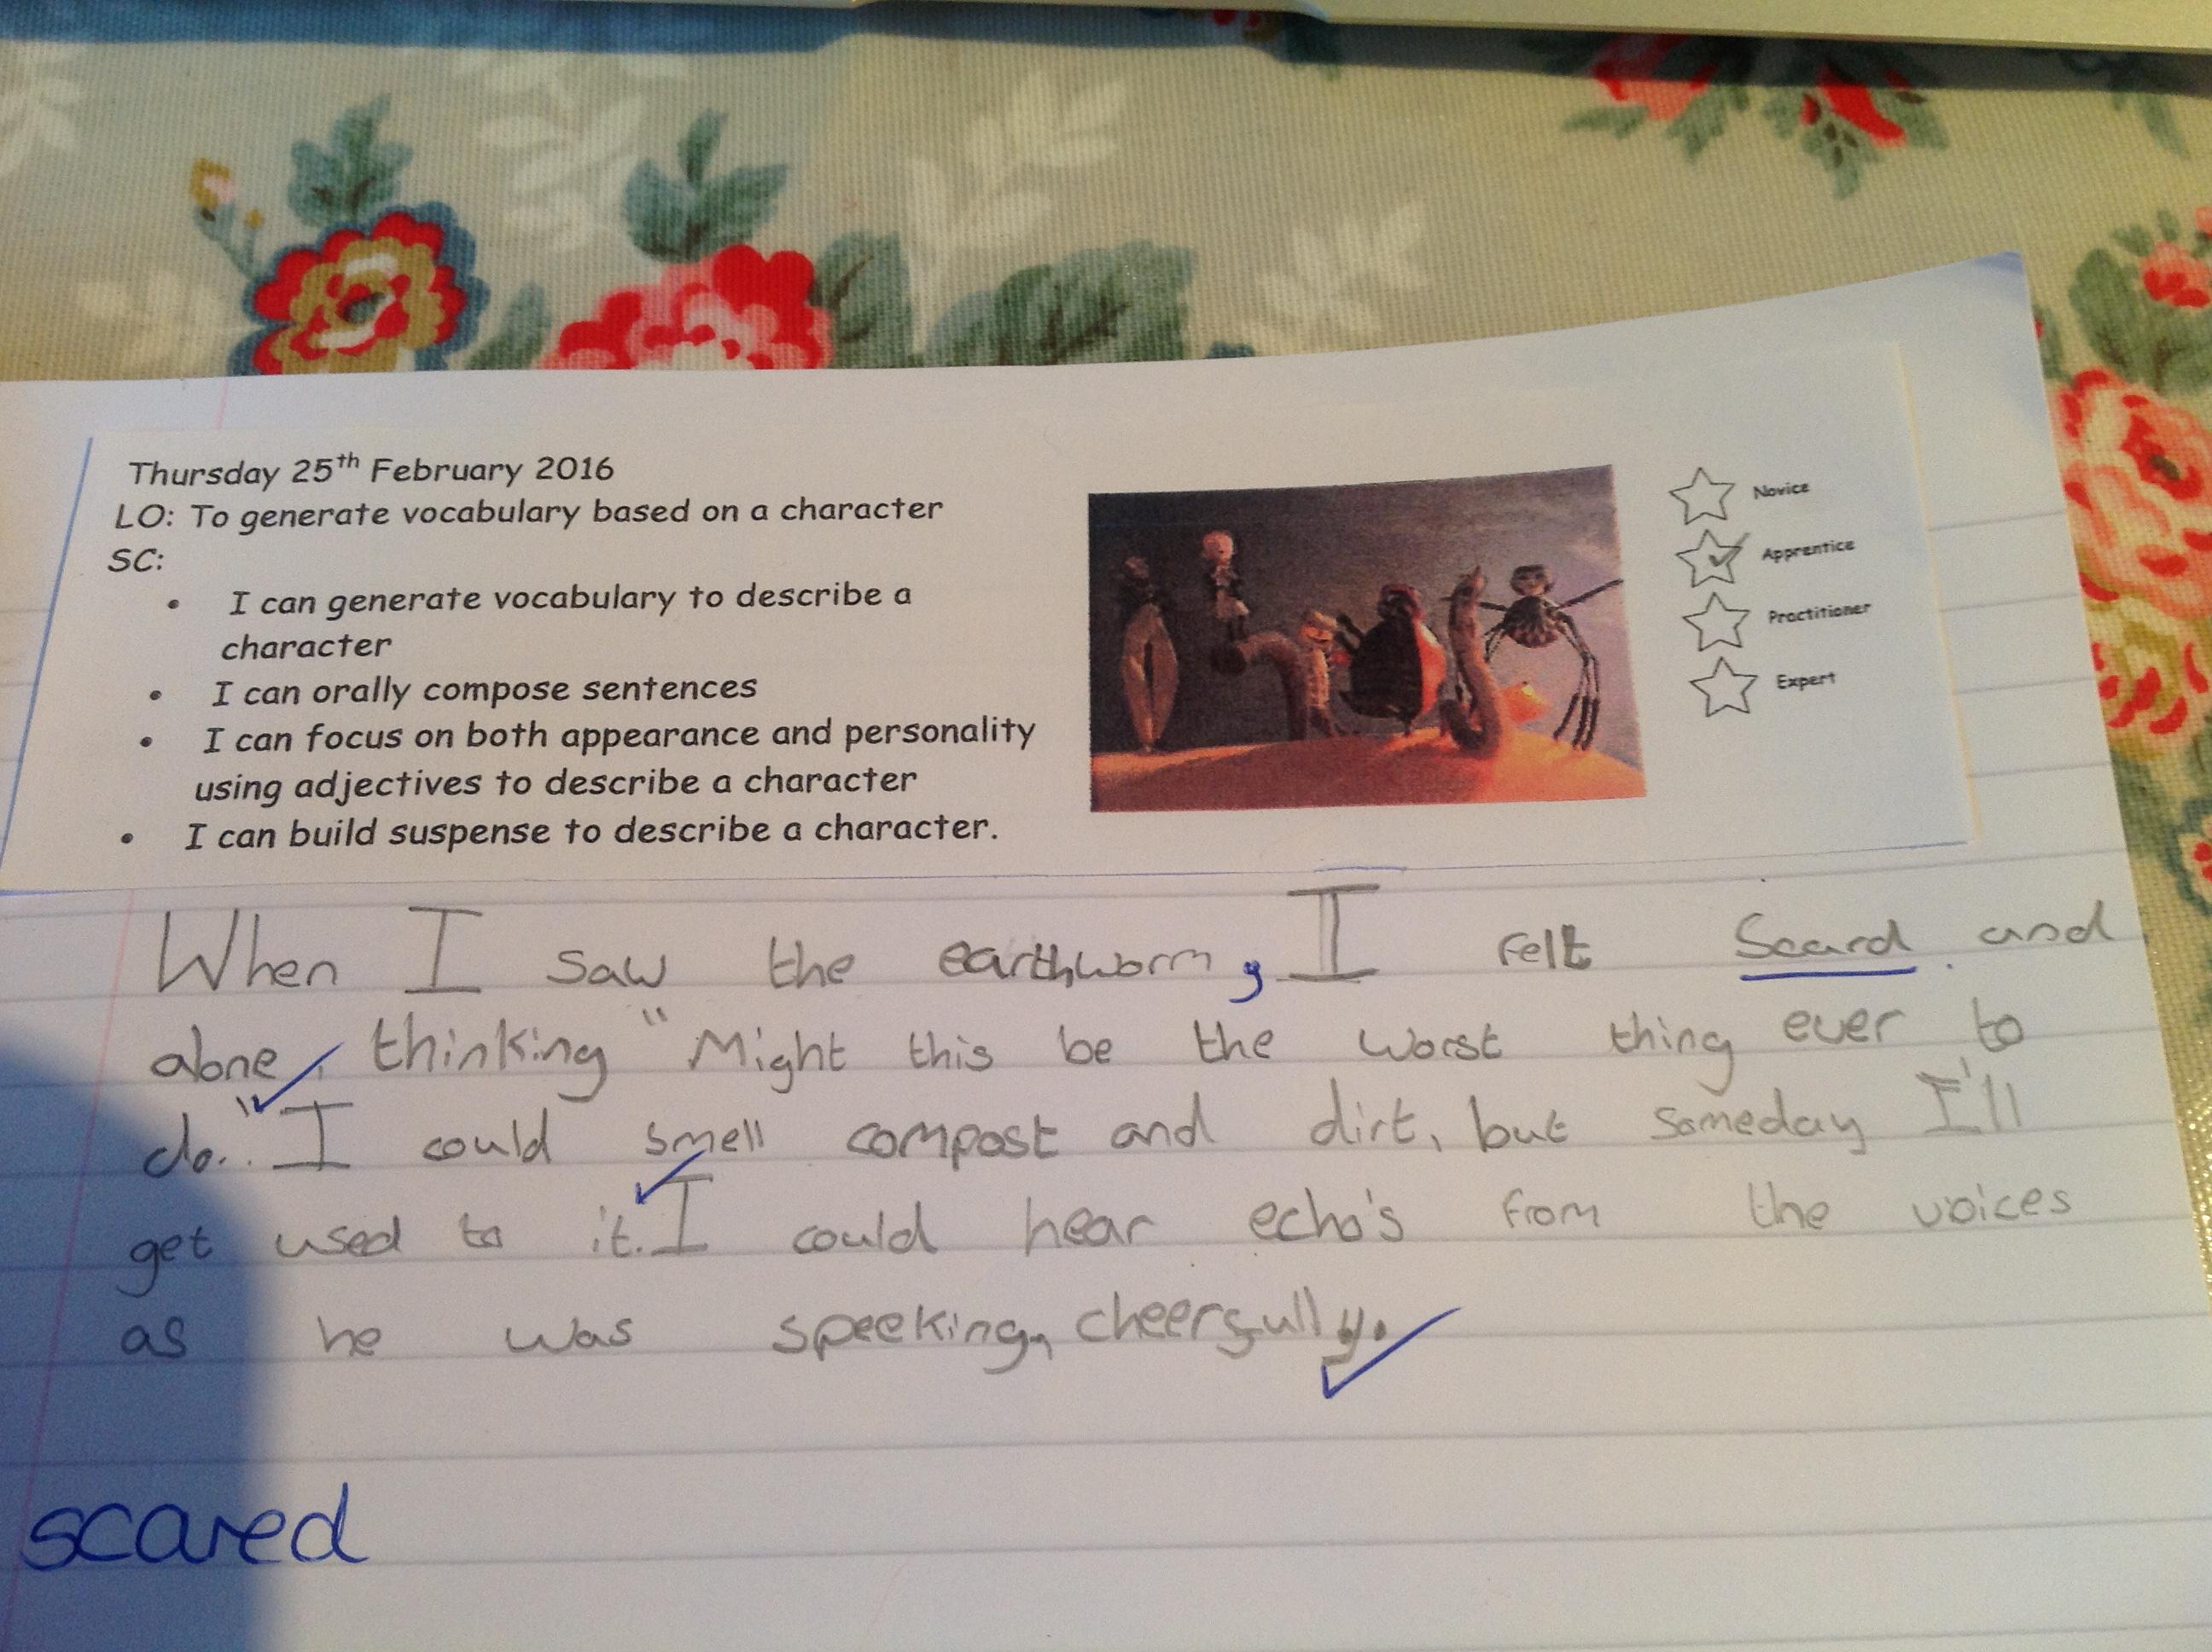 Thursday 25th February 2016
LO: To generate vocabulary based on a character
SC:
• I can generate vocabulary to describe a
character
• I can orally compose sentences
• I can focus on both appearance and personality
using adjectives to describe a character
• I can build suspense to describe a character.
Novice
Apprentice
Practitioner
Expert
When I saw the earthworm, I felt Scard and
alone, thinking "Might this be the worst thing ever to
do." I could smell compost and dirt, but someday I'll
get used to it. I could hear echo's from the voices
as he was speeking, cheerfully.
scared